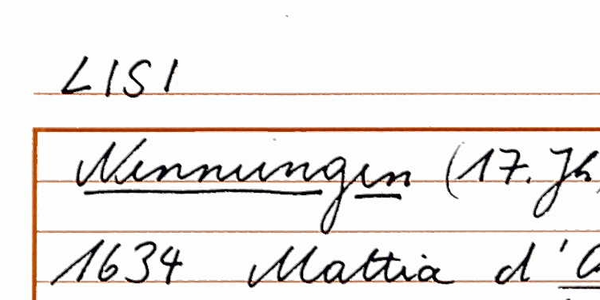 LISI
Nennungen (17. Jh
1634 Mattia d'